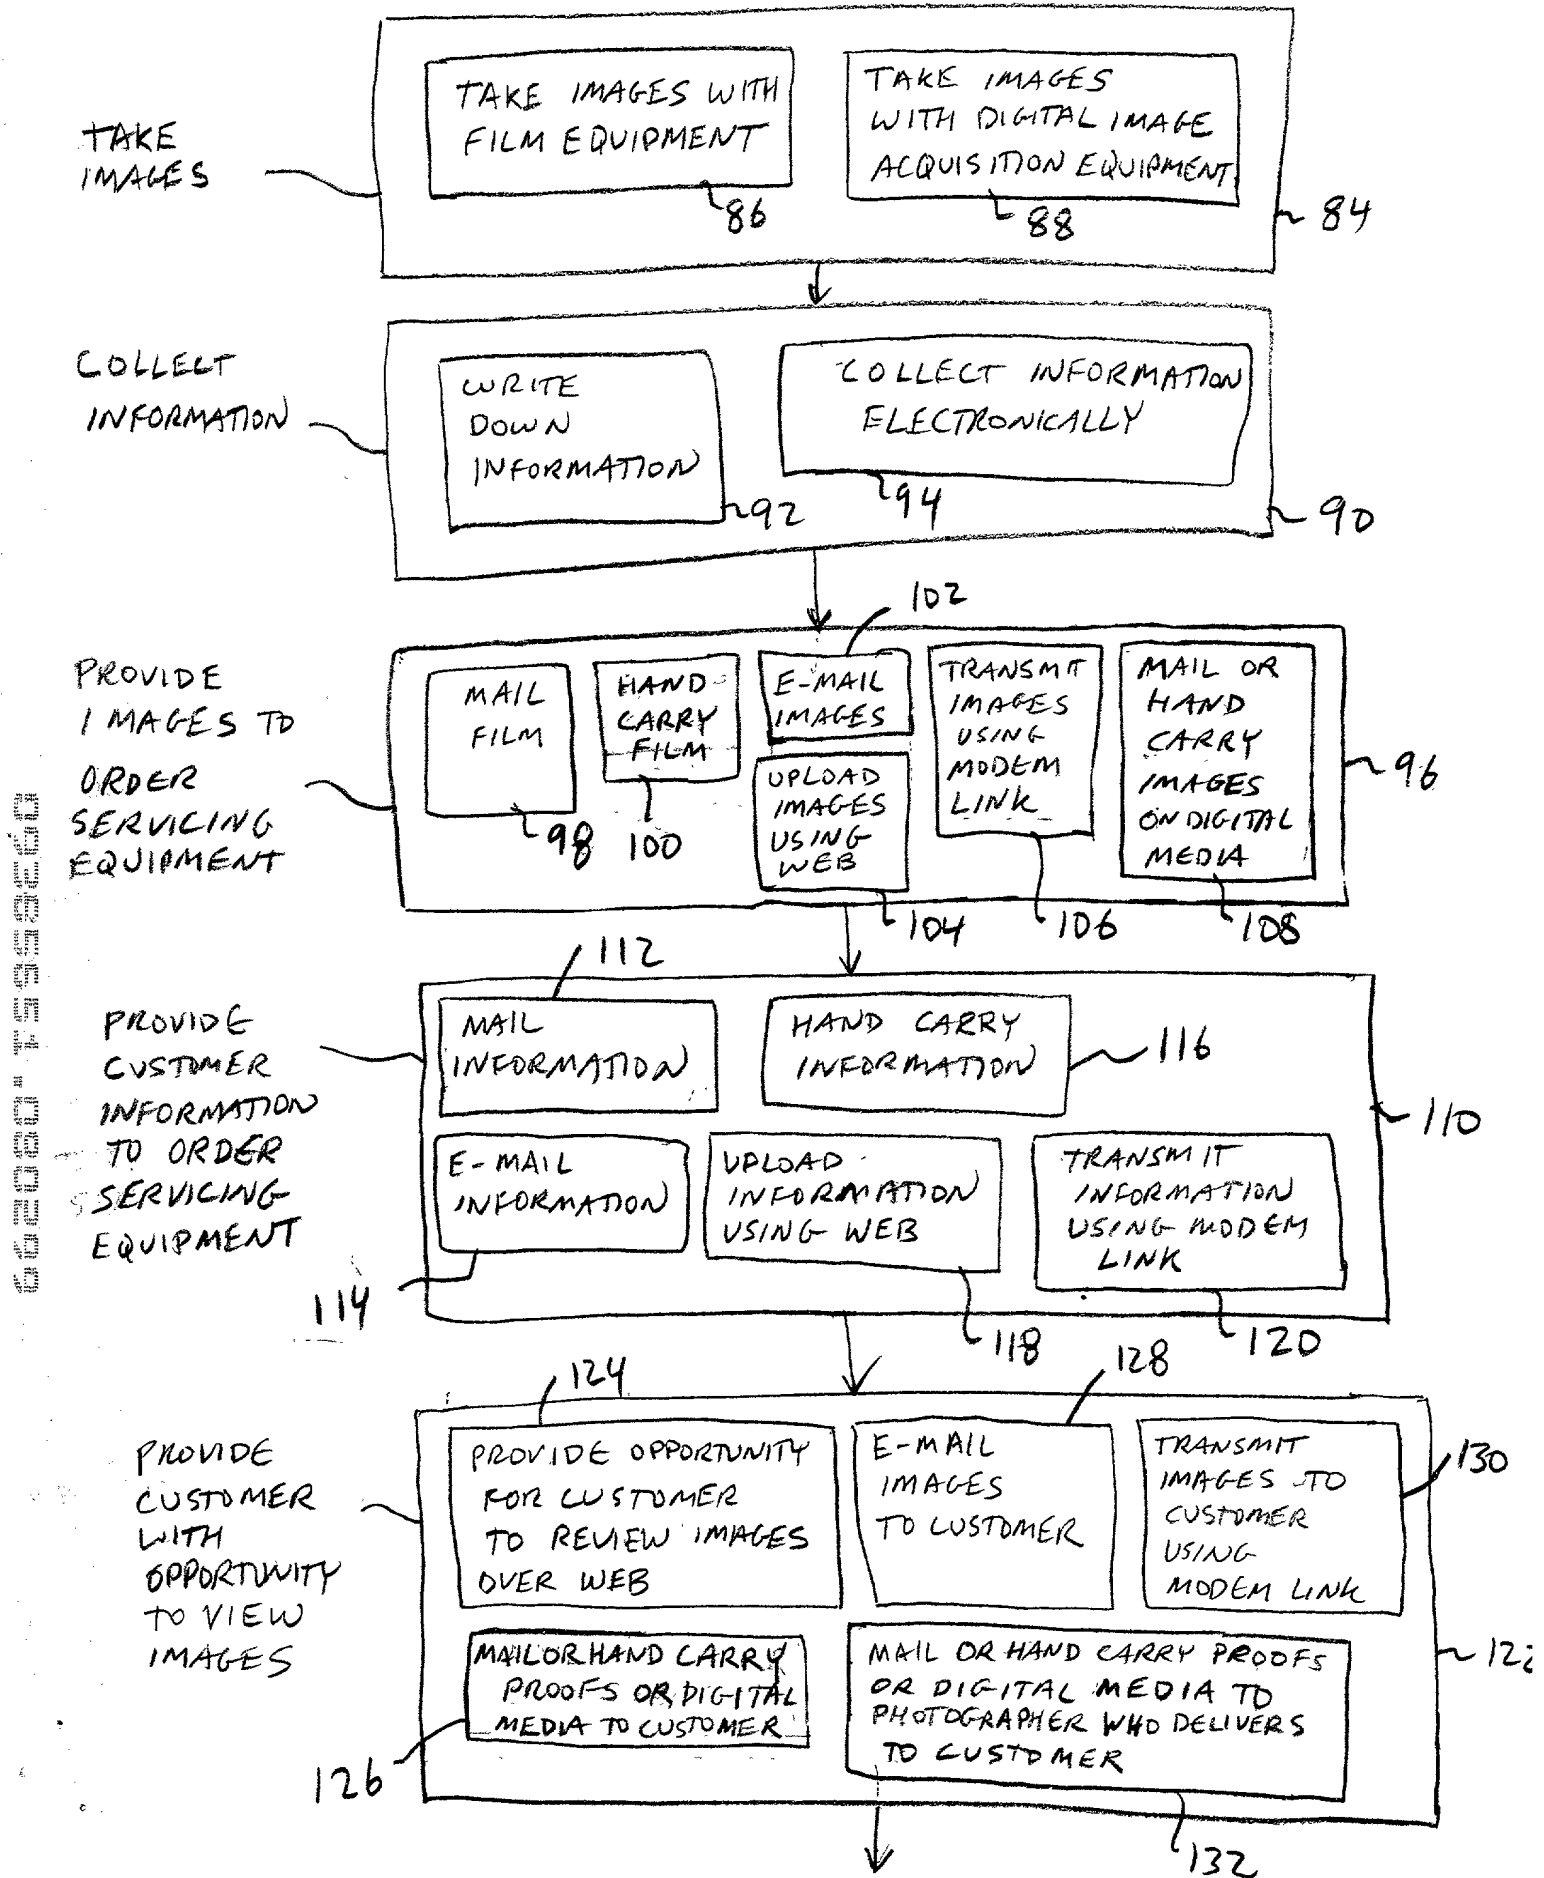 TAKE
IMAGES
TAKE IMAGES WITH
FILM EQUIPMENT
86
TAKE IMAGES
WITH DIGITAL IMAGE
ACQUISITION EQUIPMENT
88
84
COLLECT
INFORMATION
WRITE
DOWN
INFORMATION
92
COLLECT INFORMATION
ELECTRONICALLY
94
90
PROVIDE
IMAGES TO
ORDER
SERVICING
EQUIPMENT
MAIL
FILM
98
HAND
CARRY
FILM
100
102
E-MAIL
IMAGES
UPLOAD
IMAGES
USING
WEB
104
TRANSMIT
IMAGES
USING
MODEM
LINK
106
MAIL OR
HAND
CARRY
IMAGES
ON DIGITAL
MEDIA
108
96
PROVIDE
CUSTOMER
INFORMATION
TO ORDER
SERVICING
EQUIPMENT
112
MAIL
INFORMATION
HAND CARRY
INFORMATION
116
110
E-MAIL
INFORMATION
114
UPLOAD
INFORMATION
USING WEB
118
TRANSMIT
INFORMATION
USING MODEM
LINK
120
PROVIDE
CUSTOMER
WITH
OPPORTUNITY
TO VIEW
IMAGES
124
PROVIDE OPPORTUNITY
FOR CUSTOMER
TO REVIEW IMAGES
OVER WEB
128
E-MAIL
IMAGES
TO CUSTOMER
TRANSMIT
IMAGES TO
CUSTOMER
USING
MODEM LINK
130
MAIL OR HAND CARRY
PROOFS OR DIGITAL
MEDIA TO CUSTOMER
126
MAIL OR HAND CARRY PROOFS
OR DIGITAL MEDIA TO
PHOTOGRAPHER WHO DELIVERS
TO CUSTOMER
132